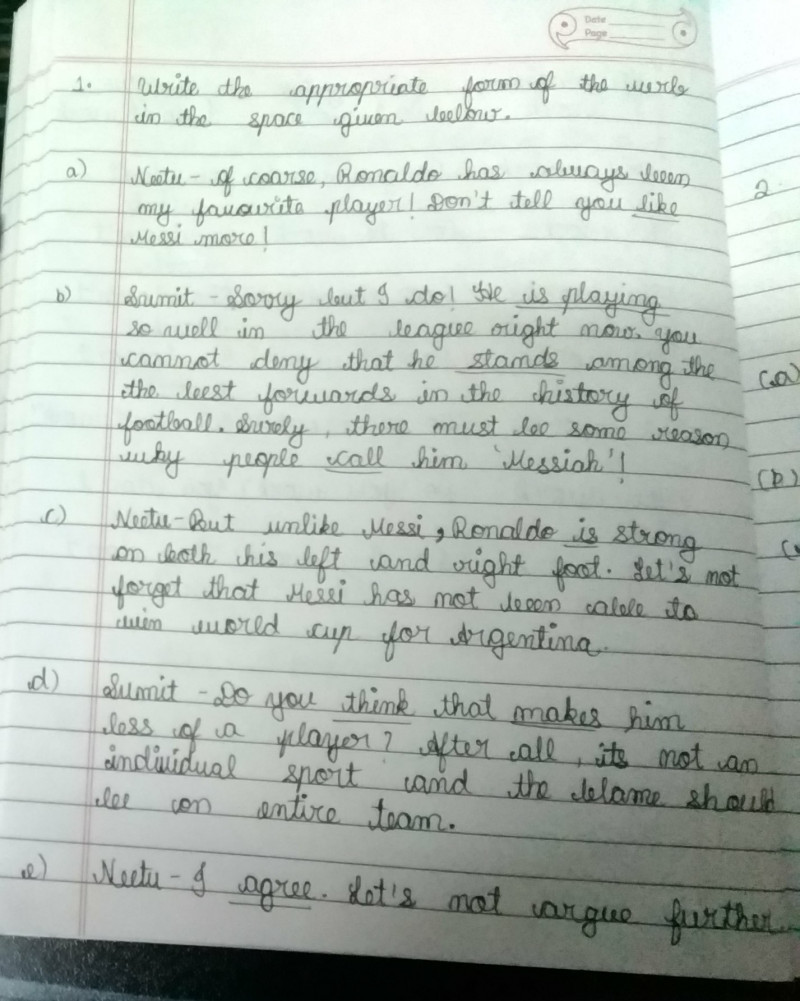 Date
Page
1. Write the appropriate form of the verb
in the space given below.
a) Neetu - Of coarse, Ronaldo has always been
my favourite player! Don't tell you like
Messi more!
b) Sumit - Sorry but I do! He is playing
so well in the league right now. you
cannot deny that he stands among the
the best forwards in the history of
football. Surely, there must be some reason
why people call him 'Messiah'!
c) Neetu - But unlike Messi, Ronaldo is strong
on both his left and right foot. Let's not
forget that Messi has not been able to
win world cup for Argentina.
d) Sumit - Do you think that makes him
less of a player? After all, its not an
individual sport and the blame should
be on entire team.
e) Neetu - I agree. Let's not argue further.
2.
(a)
(b)